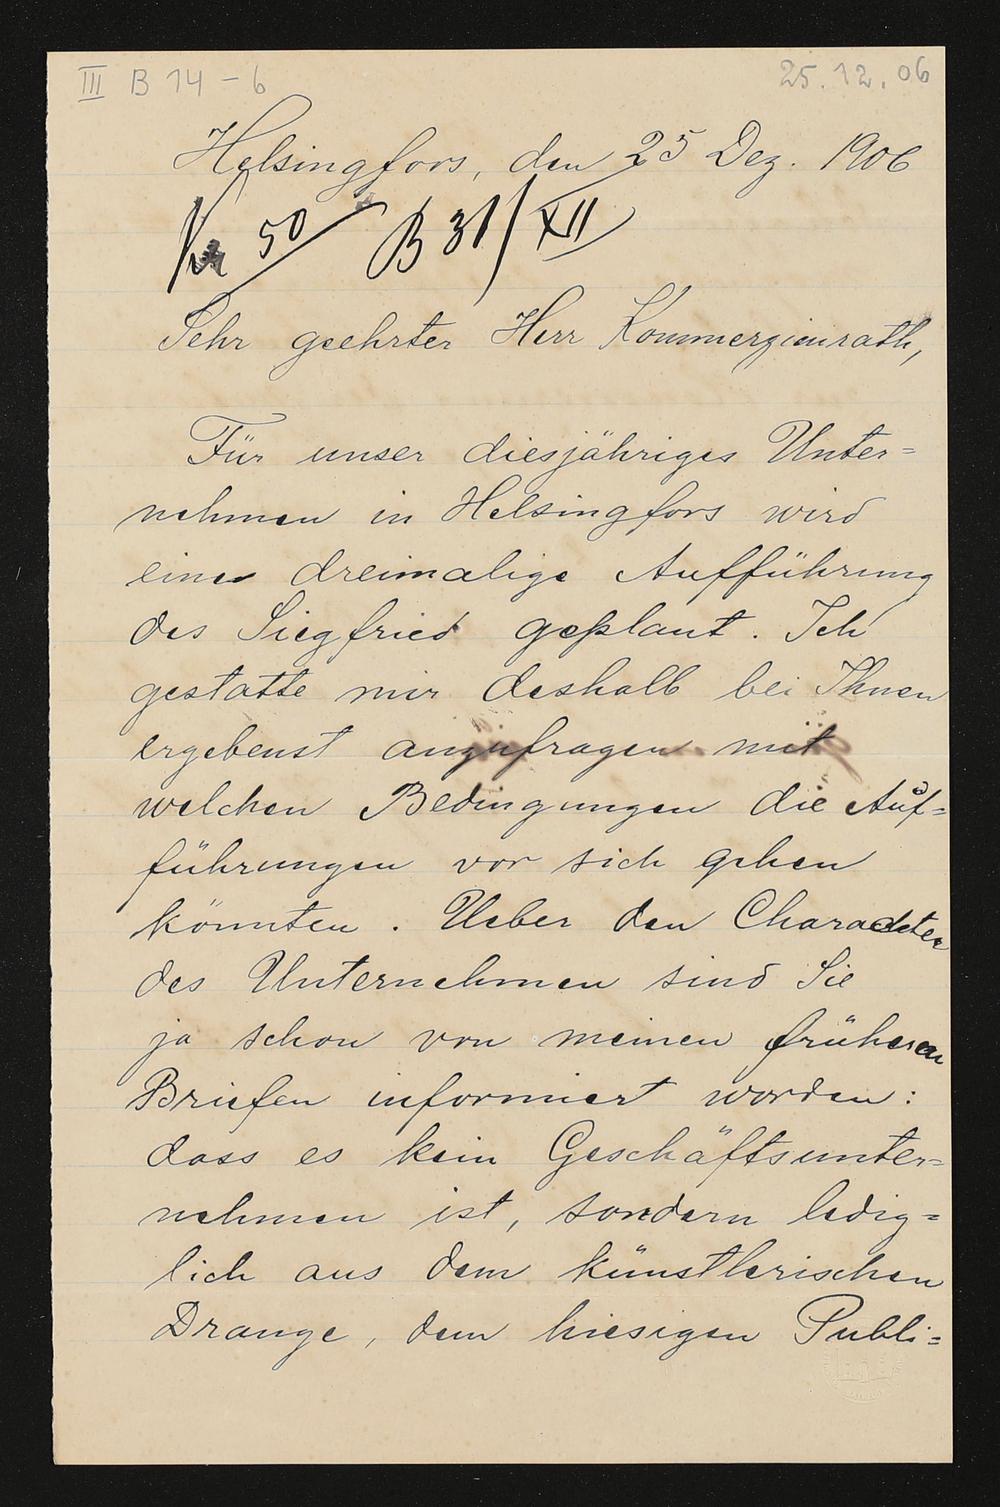 III B 14-6 25.12.06
Helsingfors, den 25 Dez. 1906
Kr 50 B 31/XII
Sehr geehrter Herr Kommerzienrath,
Für unser diesjähriges Unter=
nehmen in Helsingfors wird
eine dreimalige Aufführung
des Siegfried geplant. Ich
gestatte mir deshalb bei Ihnen
ergebenst anzufragen mit
welchen Bedingungen die Auf=
führungen vor sich gehen
könnten. Ueber den Charackter
des Unternehmen sind Sie
ja schon von meinen früheren
Briefen informiert worden:
dass es kein Geschäftsunter=
nehmen ist, sondern ledig=
lich aus dem künstlerischen
Drange, dem hiesigen Publi=